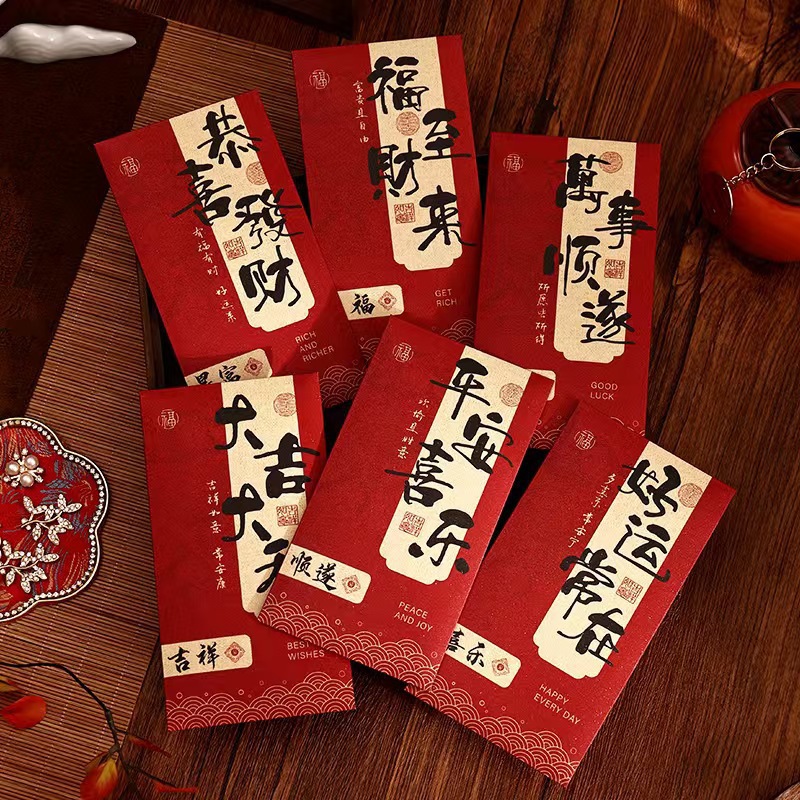 福
恭喜
發财
好运来
RICH
AND
RICHER
福
福至来
財
富贵且自由
福
GET
RICH
福
萬事
顺遂
所愿皆所得
GOOD
LUCK
福
大吉
大
吉祥如意 常安康
吉祥
BEST
WISHES
福
平安
喜乐
欢愉且胜意
顺遂
PEACE
AND JOY
福
好运
常在
多喜乐 常安宁
喜乐
HAPPY
EVERY DAY